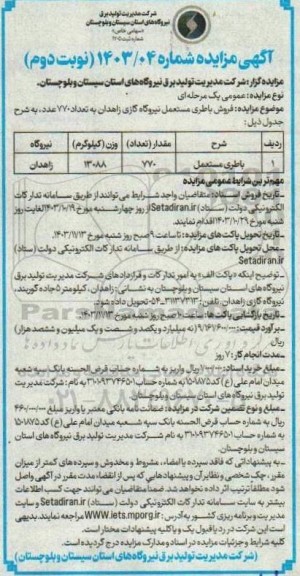 شرکت مدیریت تولید برق
نیروگاه‌های استان سیستان و بلوچستان
(سهامی خاص)
آگهی مزایده شماره ۱۴۰۳/۰۴ (نوبت دوم)
مزایده گزار: شرکت مدیریت تولید برق نیروگاه‌های استان سیستان و بلوچستان.
نوع مزایده: عمومی یک مرحله‌ای
موضوع مزایده: فروش باطری مستعمل نیروگاه گازی زاهدان به تعداد ۷۷۰ عدد، به شرح
جدول ذیل:
ردیف شرح مقدار (تعداد) وزن (کیلوگرم) نیروگاه
۱ باطری مستعمل ۷۷۰ ۱۳۰۸۸ زاهدان
مهم‌ترین شرایط عمومی مزایده
ـ تاریخ فروش اسناد: متقاضیان واجد شرایط می‌توانند از طریق سامانه تدارکات
الکترونیکی دولت (ستاد) Setadiran.ir از روز چهارشنبه مورخ ۱۴۰۳/۱۰/۱۹ لغایت روز
شنبه مورخ ۱۴۰۳/۱۰/۲۹ اقدام نمایند.
ـ تاریخ تحویل پاکت‌های مزایده: تا ساعت ۹ صبح روز شنبه مورخ ۱۴۰۳/۱۱/۱۳
ـ محل تحویل پاکت‌های مزایده: از طریق سامانه تدارکات الکترونیکی دولت (ستاد)
Setadiran.ir
ـ توضیح اینکه «پاکت الف» به امور تدارکات و قراردادهای شرکت مدیریت تولید برق
نیروگاه‌های استان سیستان و بلوچستان به نشانی: زاهدان، کیلومتر ۵ جاده کورین،
نیروگاه گازی زاهدان، تلفن: ۳۱۱۳۷۳۱۳-۰۵۴ تحویل داده شود.
ـ تاریخ بازگشایی پاکت‌ها: ساعت ۱۰ صبح روز شنبه مورخ ۱۴۰۳/۱۱/۱۳
ـ برآورد قیمت: ۹/۱۶۱/۶۰۰/۰۰۰ (نه میلیارد و یکصد و شصت و یک میلیون و ششصد هزار)
ریال
ـ مدت انجام کار: ۷ روز
ـ مبلغ خرید اسناد: ریال واریز به شماره حساب قرض الحسنه بانک سپه شعبه
میدان امام علی (ع) کد ۱۵۰۱۸۷۵ به شماره حساب ۳۱۰۱۹۳۷۴۶۵۰۱ به نام: شرکت مدیریت
تولید برق نیروگاه‌های استان سیستان و بلوچستان.
ـ مبلغ و نوع تضمین شرکت در مزایده: ضمانت نامه بانکی معتبر یا واریز مبلغ ۴۶۰/۰۰۰/۰۰۰
ریال به شماره حساب قرض الحسنه بانک سپه شعبه میدان امام علی (ع) کد ۱۵۰۱۸۷۵
به شماره حساب ۳۱۰۱۹۳۷۴۶۵۰۱ به نام شرکت مدیریت تولید برق نیروگاه های استان
سیستان و بلوچستان.
ـ به پیشنهاداتی که فاقد سپرده یا امضاء، مشروط و مخدوش و سپرده‌های کمتر از میزان
مقرر، چک شخصی و نظایر آن و پیشنهادهایی که پس از انقضاء مدت مقرر در آگهی واصل
شود مطلقا ترتیب اثر داده نخواهد شد. ضمنا متقاضیان می‌توانند جهت کسب اطلاعات
بیشتر به سایت سامانه تدارکات الکترونیکی دولت (ستاد) Setadiran.ir و سایت
مدیریت و برنامه ریزی کشور به آدرس: WWW.iets.mporg.ir مراجعه نمایند. بدیهی
است این شرکت در رد یا قبول یک و یا کلیه پیشنهادات مختار است.
کلیه شرایط و جزئیات مزایده در اسناد و مدارک مزایده درج گردیده است.
(شرکت مدیریت تولید برق نیروگاه‌های استان سیستان و بلوچستان)